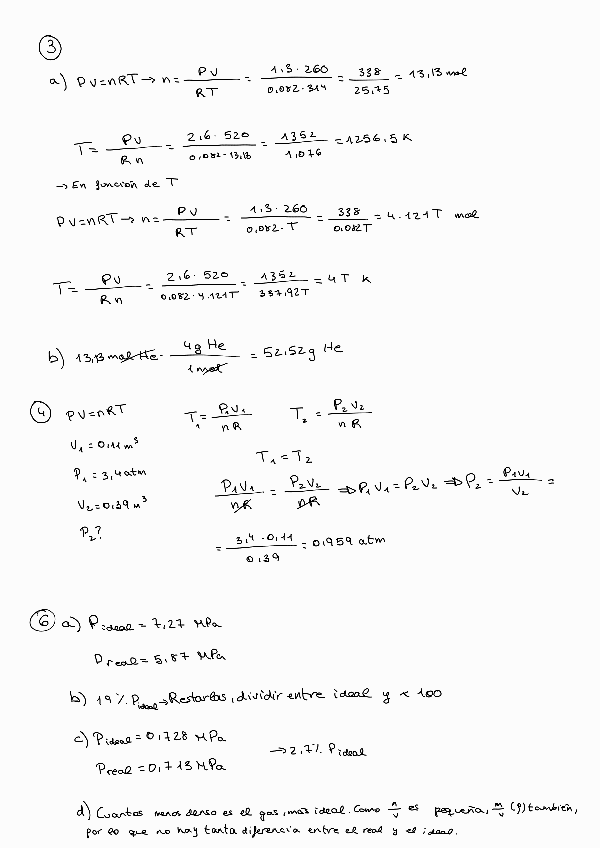 3
a) PV=nRT → n = PV/RT = 1,3 · 260/0,082 · 314 = 338/25,75 = 13,13 mol
T = PV/Rn = 2,6 · 520/0,082 · 13,13 = 1352/1,076 = 1256,5 K
→ En función de T
PV=nRT → n = PV/RT = 1,3 · 260/0,082 · T = 338/0,082T = 4.121T mol
T = PV/Rn = 2,6 · 520/0,082 · 4.121T = 1352/337,92T = 4T K
b) 13,13 mol He · 4g He/1 mol = 52,52g He
4 PV=nRT T₁ = P₁V₁/nR T₂ = P₂V₂/nR
V₁ = 0,11 m³
T₁ = T₂
P₁ = 3,4 atm
P₁V₁/nR = P₂V₂/nR ⇒ P₁V₁ = P₂V₂ ⇒ P₂ = P₁V₁/V₂ =
V₂ = 0,39 m³
P₂?
= 3,4 · 0,11/0,39 = 0,959 atm
6 a) P ideal = 7,27 MPa
P real = 5,87 MPa
b) 19% P ideal → Restarlas, dividir entre ideal y × 100
c) P ideal = 0,728 MPa
→ 2,7% P ideal
P real = 0,713 MPa
d) Cuantos menos denso es el gas, más ideal. Como n/v es pequeña, m/v (ρ) también,
por lo que no hay tanta diferencia entre el real y el ideal.